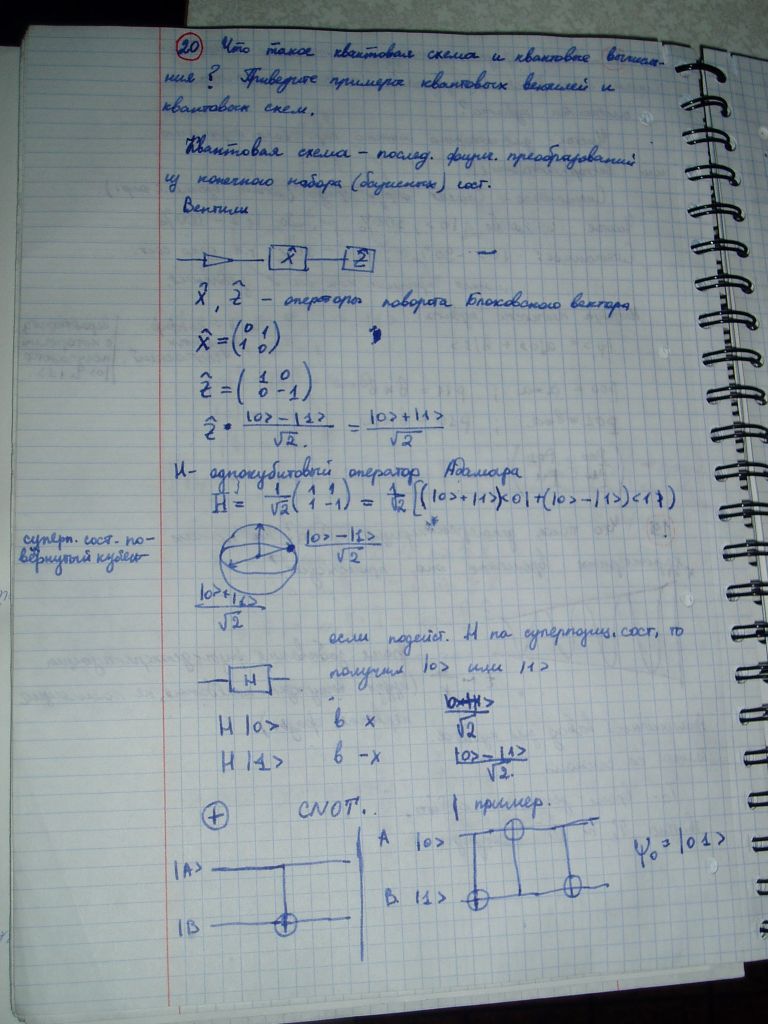 20 Что такое квантовая схема и квантовые вычисле-
ния? Приведите примеры квантовых вентилей и
квантовых схем.
Квантовая схема – послед. физич. преобразований
из конечного набора (базисных) сост.
Вентили
X̂ Ẑ
X̂, Ẑ – операторы поворота Блоховского вектора
X̂ = (0 1
1 0)
Ẑ = (1 0
0 -1)
Ẑ · |0> - |1> / √2 = |0> + |1> / √2
H - однокубитовый оператор Адамара
Ĥ = 1/√2 (1 1
1 -1) = 1/√2 [(|0> + |1>)<0| + (|0> - |1>)<1|)
суперп. сост. по-
вёрнутый кубит
|0> - |1> / √2
|0> + |1> / √2
если подейст. H на суперпозиц. сост, то
получим |0> или |1>
H
H |0> в x |0>+|1> / √2
H |1> в -x |0> - |1> / √2
⊕ CNOT. пример.
|A>
|B
A |0>
B. |1>
ψ₀ = |01>